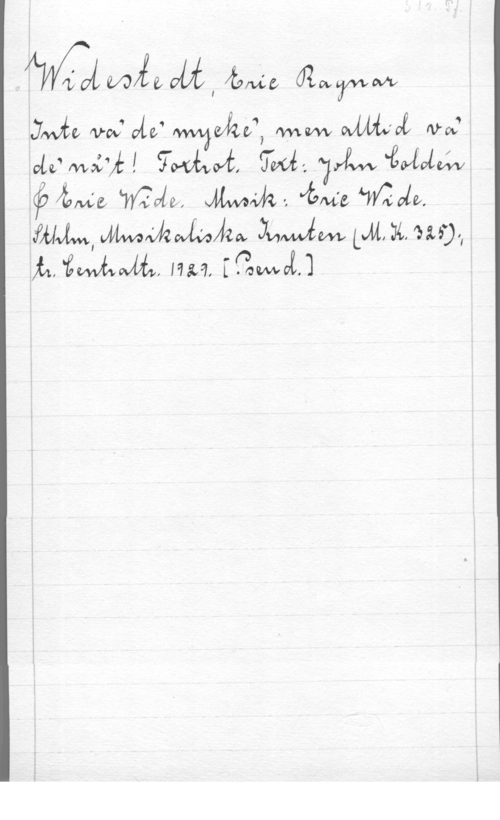 Widestedt, Eric Ragnar
Inte va' de' mycke', men alltid va'
de' nå't! Foxtrot. Text: John Coldén
& Eric Wide. Musik: Eric Wide.
Sthlm, Musikaliska Knuten (M. K. 325);
tr. Centraltr. 1927. [Pseud.]